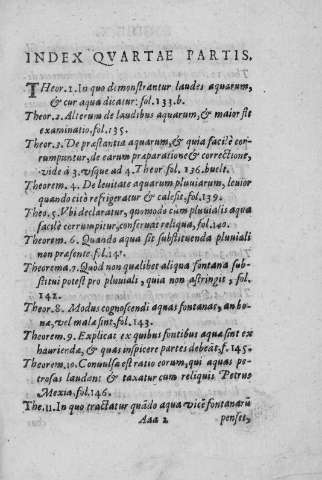 INDEX QVARTAE PARTIS.
THeor. 1. In quo demonstrantur laudes aquarum,
& cur aqua dicatur: fol. 133. b.
Theor. 2. Alterum de laudibus aquarum, & maior sit
examinatio. fol. 135.
Theor. 3. De præstantia aquarum, & quia facilè cor-
rumpuntur, de earum præparatione & correctione,
vide à 3. vsque ad 4. Theor. fol. 136. buelt.
Theorem. 4. De leuitate aquarum pluuiarum, leuior
quando citò refrigeratur & calefit. fol. 139.
Theo. 5. Vbi declaratur, quomodo cùm pluuialis aqua
facilè corrumpitur, conseruat reliqua, fol. 140.
Theorem. 6. Quando aqua sit substituenda pluuiali
non præsente. fol. 141.
Theorema. 7. Quòd non qualibet aliqua fontana sub-
stitui potest pro pluuiali, quia non astringit, fol.
142.
Theor. 8. Modus cognoscendi aquas fontanas, an bo-
na, vel mala sint. fol. 143.
Theorem. 9. Explicat ex quibus fontibus aqua sint ex
haurienda, & quas inspicere partes debeāt. f. 145.
Theorem. 10. Conuulsa est ratio eorum, qui aquas pe-
trosas laudant & taxatur cum reliquis Petrus
Mexia, fol. 146.
The. 11. In quo tractatur quādo aqua vicē fontanarū
Aaa 2 penset,